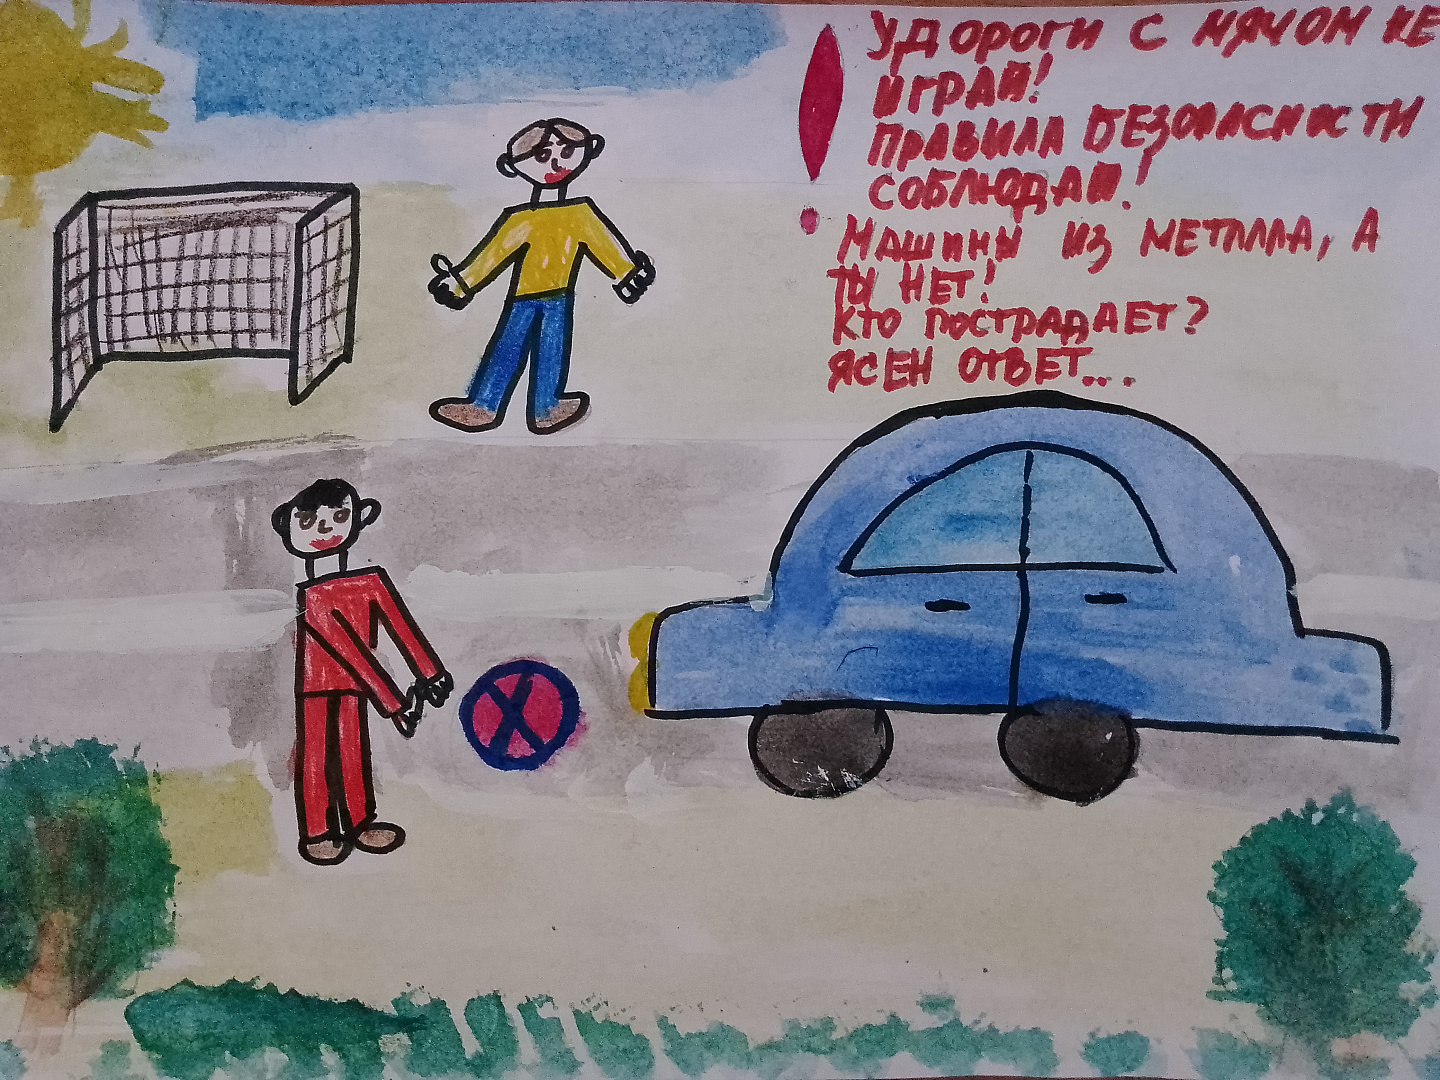 У ДОРОГИ С МЯЧОМ НЕ
ИГРАЙ!
ПРАВИЛА БЕЗОПАСНОСТИ
СОБЛЮДАЙ!
МАШИНЫ ИЗ МЕТАЛЛА, А
ТЫ НЕТ!
КТО ПОСТРАДАЕТ?
ЯСЕН ОТВЕТ...